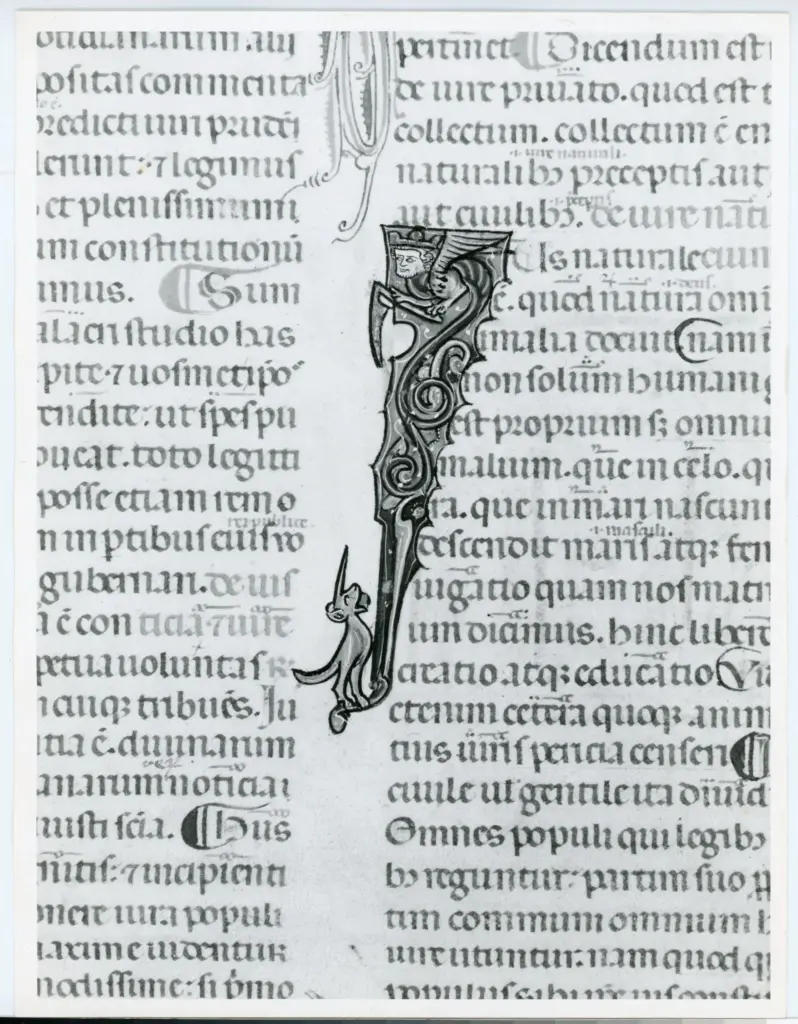 positas commenta
predicti uiri prudēt
legerunt: ⁊ legimus
et plenissimum
um constitutionū
imus. Sum
alacri studio has
pite ⁊ uosmetip̄o
tendite: ut spes pu
foueat. toto legitti
posse etiam rem o
rei publice
n in ptibus eius uo
gubernari. de ius
a ē con ticia ⁊ iure
petua uoluntas
cuiq; tribuēs. Ju
tia ē. diuinarum
anarum noticia i
iniusti scīa. Hus
nitis: ⁊ incipienti
ponere iura populi
maxime uidentur
modissime: si p̄mo
pertinet Dicendum est i
de iure priuato. quod est t
collectum. collectum ē en
.i. iure naturali.
naturalib; preceptis aut
aut ciuilib;. de iure nāti
Us naturale
ē. quod natura omi
imalia docuit Nam i
non solum humani g
est proprium s; omniu
malium. que in celo. q
ra. que in mari nascunt
.i. masculi.
descendit maris atq; fem
iugatio quam nos matri
ium dicimus. hinc libero
creatio atq; educatio Vi
etenim cetera quoq; anim
tius iuris pericia censeri
ciuile uel gentile ita diuid
Omnes populi qui legib;
b; reguntur: partim suo p
tim communi omnium h
iure utuntur. nam quod q
populus sibi iure constit